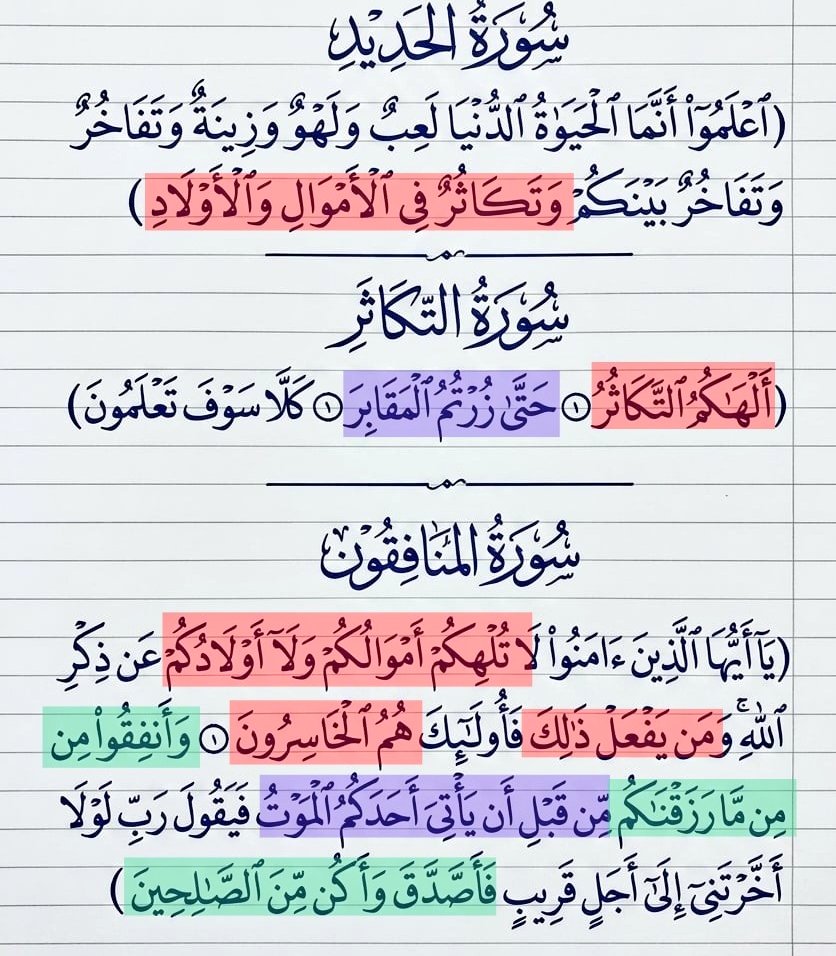 سُورَةُ الْحَدِيدِ
(ٱعْلَمُوٓا۟ أَنَّمَا ٱلْحَيَوٰةُ ٱلدُّنْيَا لَعِبٌ وَلَهْوٌ وَزِينَةٌ وَتَفَاخُرٌ
وَتَفَاخُرٌ بَيْنَكُمْ وَتَكَاثُرٌ فِى ٱلْأَمْوَالِ وَٱلْأَوْلَادِ)
سُورَةُ التَّكَاثُرِ
(أَلْهَىٰكُمُ ٱلتَّكَاثُرُ ۝١ حَتَّىٰ زُرْتُمُ ٱلْمَقَابِرَ ۝١ كَلَّا سَوْفَ تَعْلَمُونَ)
سُورَةُ الْمُنَافِقُونَ
(يَـٰٓأَيُّهَا ٱلَّذِينَ ءَامَنُوا۟ لَا تُلْهِكُمْ أَمْوَالُكُمْ وَلَآ أَوْلَادُكُمْ عَن ذِكْرِ
ٱللَّهِ ۚ وَمَن يَفْعَلْ ذَٰلِكَ فَأُولَـٰٓئِكَ هُمُ ٱلْخَاسِرُونَ ۝١ وَأَنفِقُوا۟ مِن
مِن مَّا رَزَقْنَـٰكُم مِّن قَبْلِ أَن يَأْتِىَ أَحَدَكُمُ ٱلْمَوْتُ فَيَقُولَ رَبِّ لَوْلَا
أَخَّرْتَنِىٓ إِلَىٰٓ أَجَلٍ قَرِيبٍ فَأَصَّدَّقَ وَأَكُن مِّنَ ٱلصَّـٰلِحِينَ)